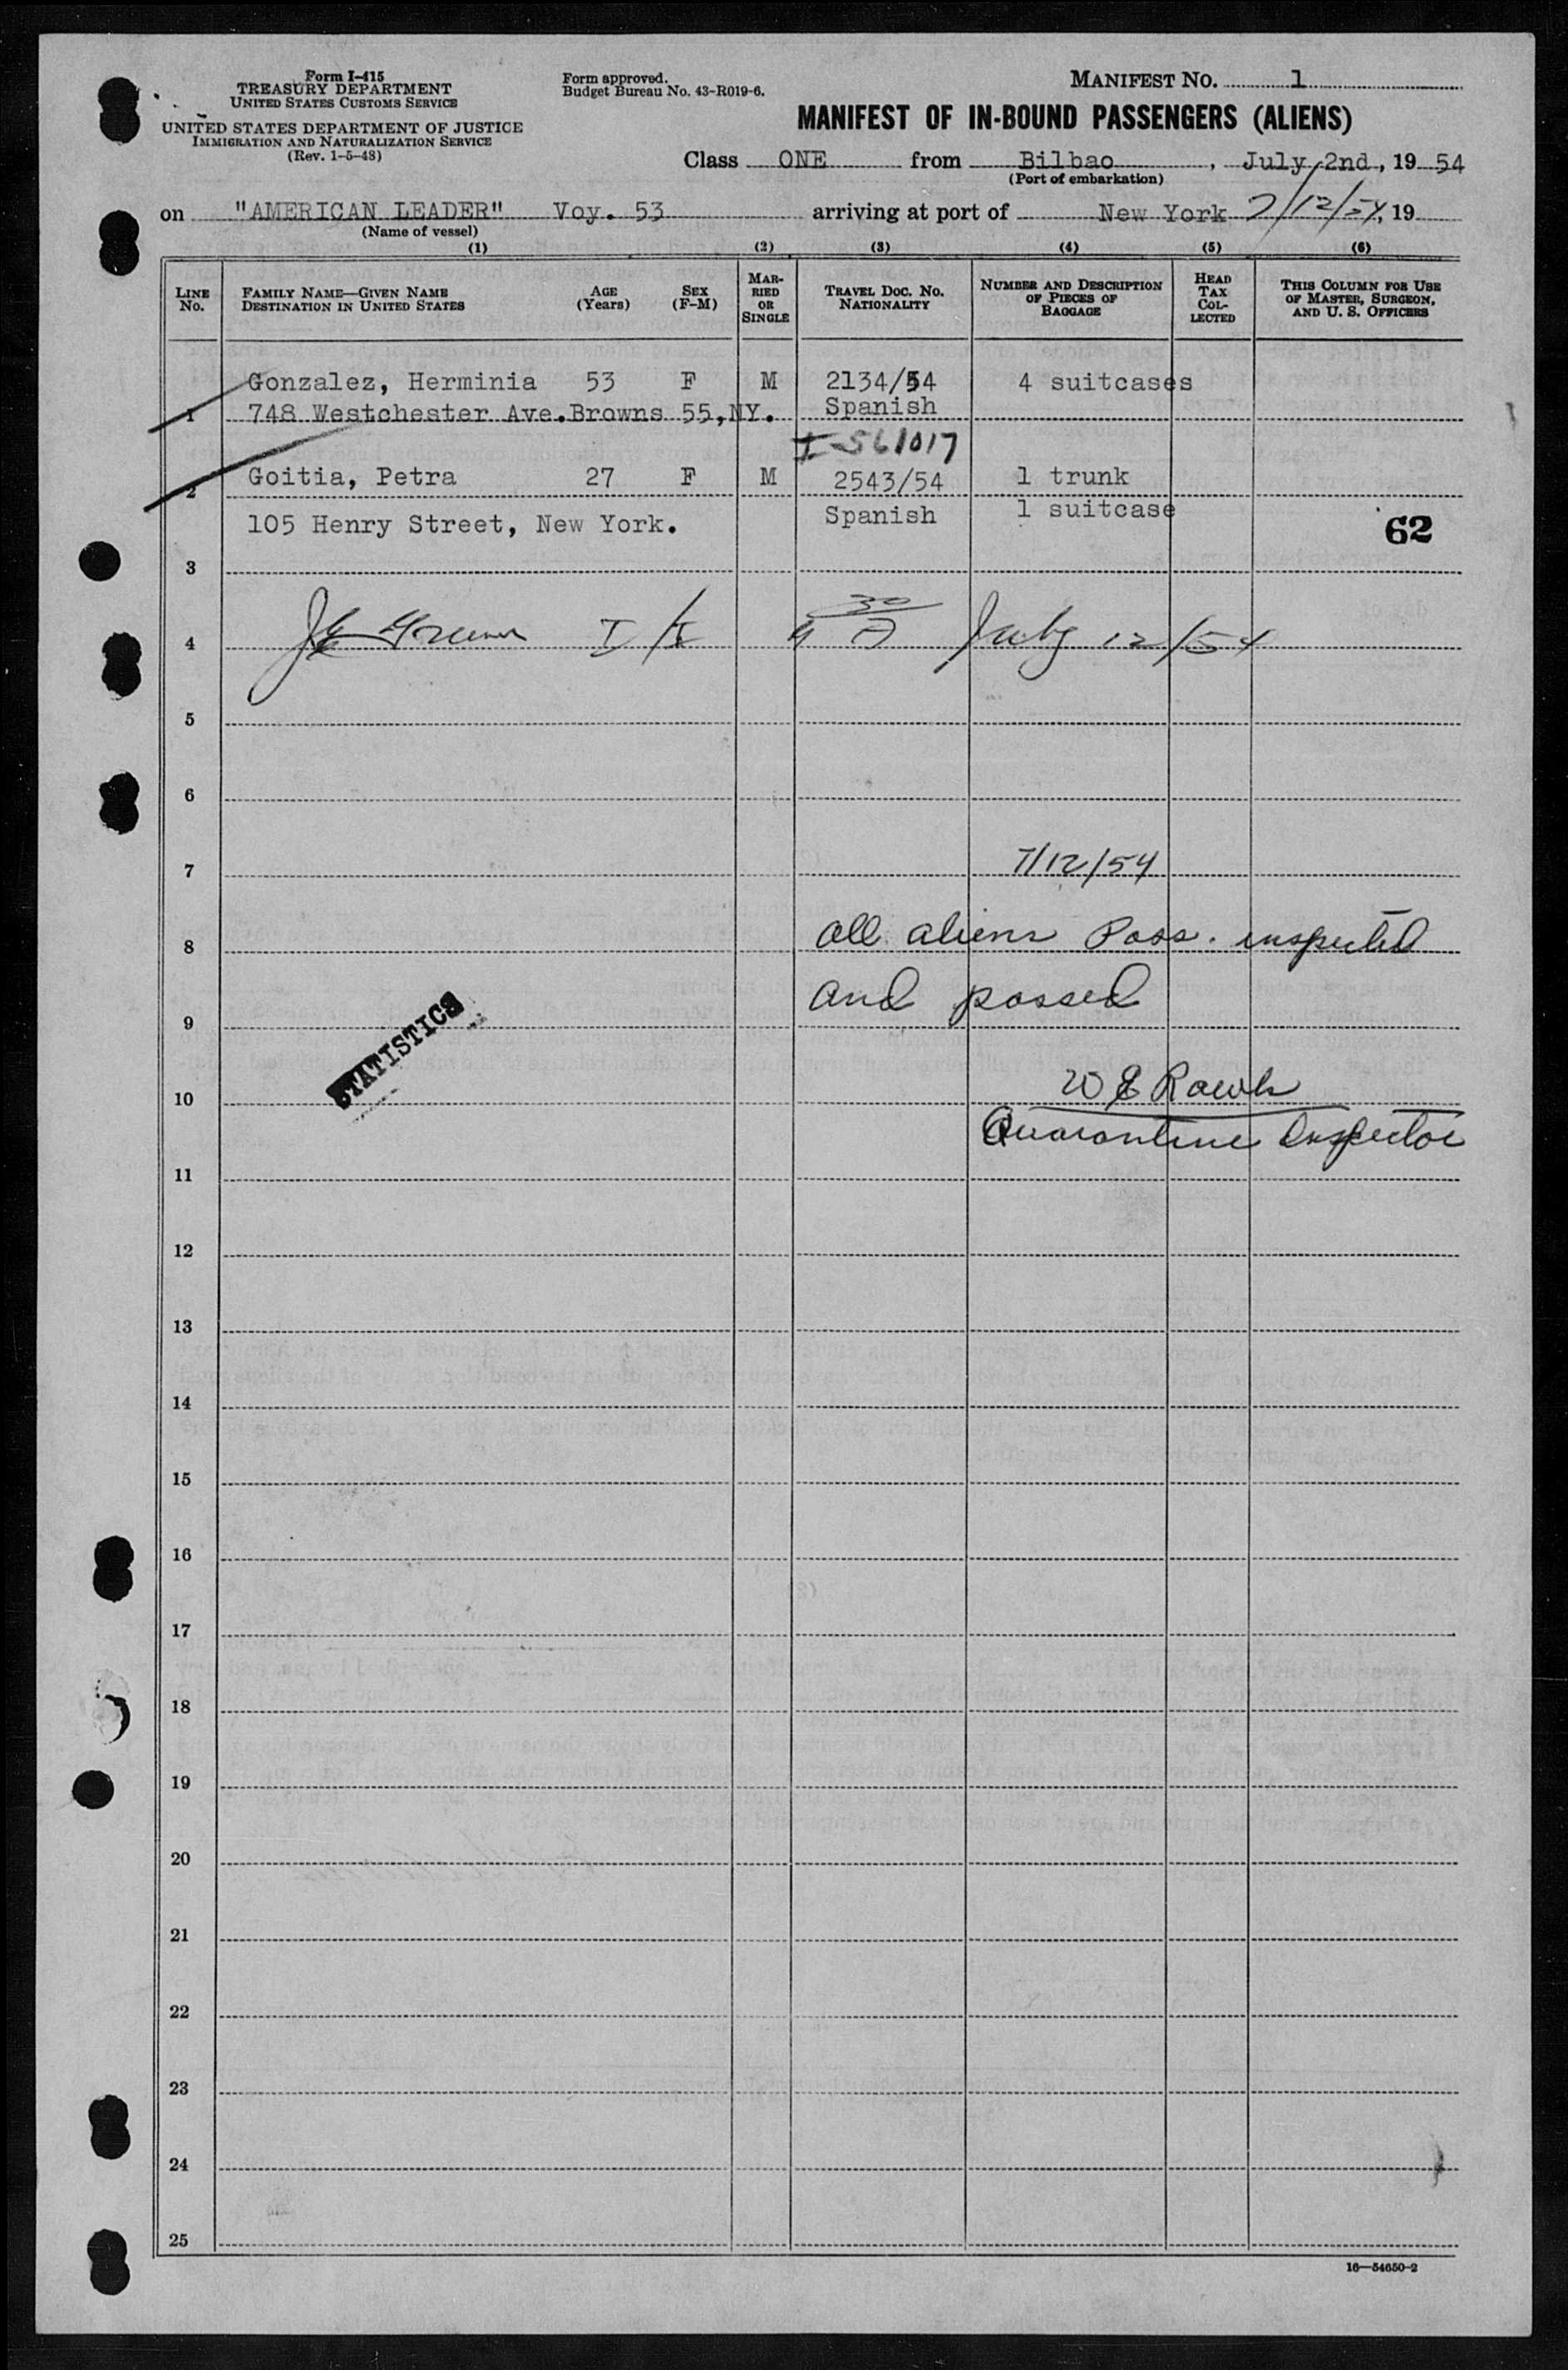 Form I-415
TREASURY DEPARTMENT
UNITED STATES CUSTOMS SERVICE
UNITED STATES DEPARTMENT OF JUSTICE
IMMIGRATION AND NATURALIZATION SERVICE
(Rev. 1-5-48)
Form approved.
Budget Bureau No. 43-R019-6.
MANIFEST NO. 1
MANIFEST OF IN-BOUND PASSENGERS (ALIENS)
Class ONE from Bilbao, July 2nd, 19 54
(Port of embarkation)
on "AMERICAN LEADER" Voy. 53 arriving at port of New York 7/12/54, 19
(Name of vessel)
(1) (2) (3) (4) (5) (6)
LINE No. FAMILY NAME—GIVEN NAME DESTINATION IN UNITED STATES AGE (Years) SEX (F-M) MARRIED OR SINGLE TRAVEL DOC. NO. NATIONALITY NUMBER AND DESCRIPTION OF PIECES OF BAGGAGE HEAD TAX COLLECTED THIS COLUMN FOR USE OF MASTER, SURGEON, AND U. S. OFFICERS
Gonzalez, Herminia 53 F M 2134/54 4 suitcases
1 748 Westchester Ave.Browns 55,NY. Spanish
I-561017
2 Goitia, Petra 27 F M 2543/54 1 trunk
105 Henry Street, New York. Spanish 1 suitcase
62
3
4 July 12/54
5
6
7 7/12/54
8 all aliens Pass. inspected
9 and passed
STATISTICS
10 W E Rawls
Quarantine Inspector
11
12
13
14
15
16
17
18
19
20
21
22
23
24
25
16—54650-2